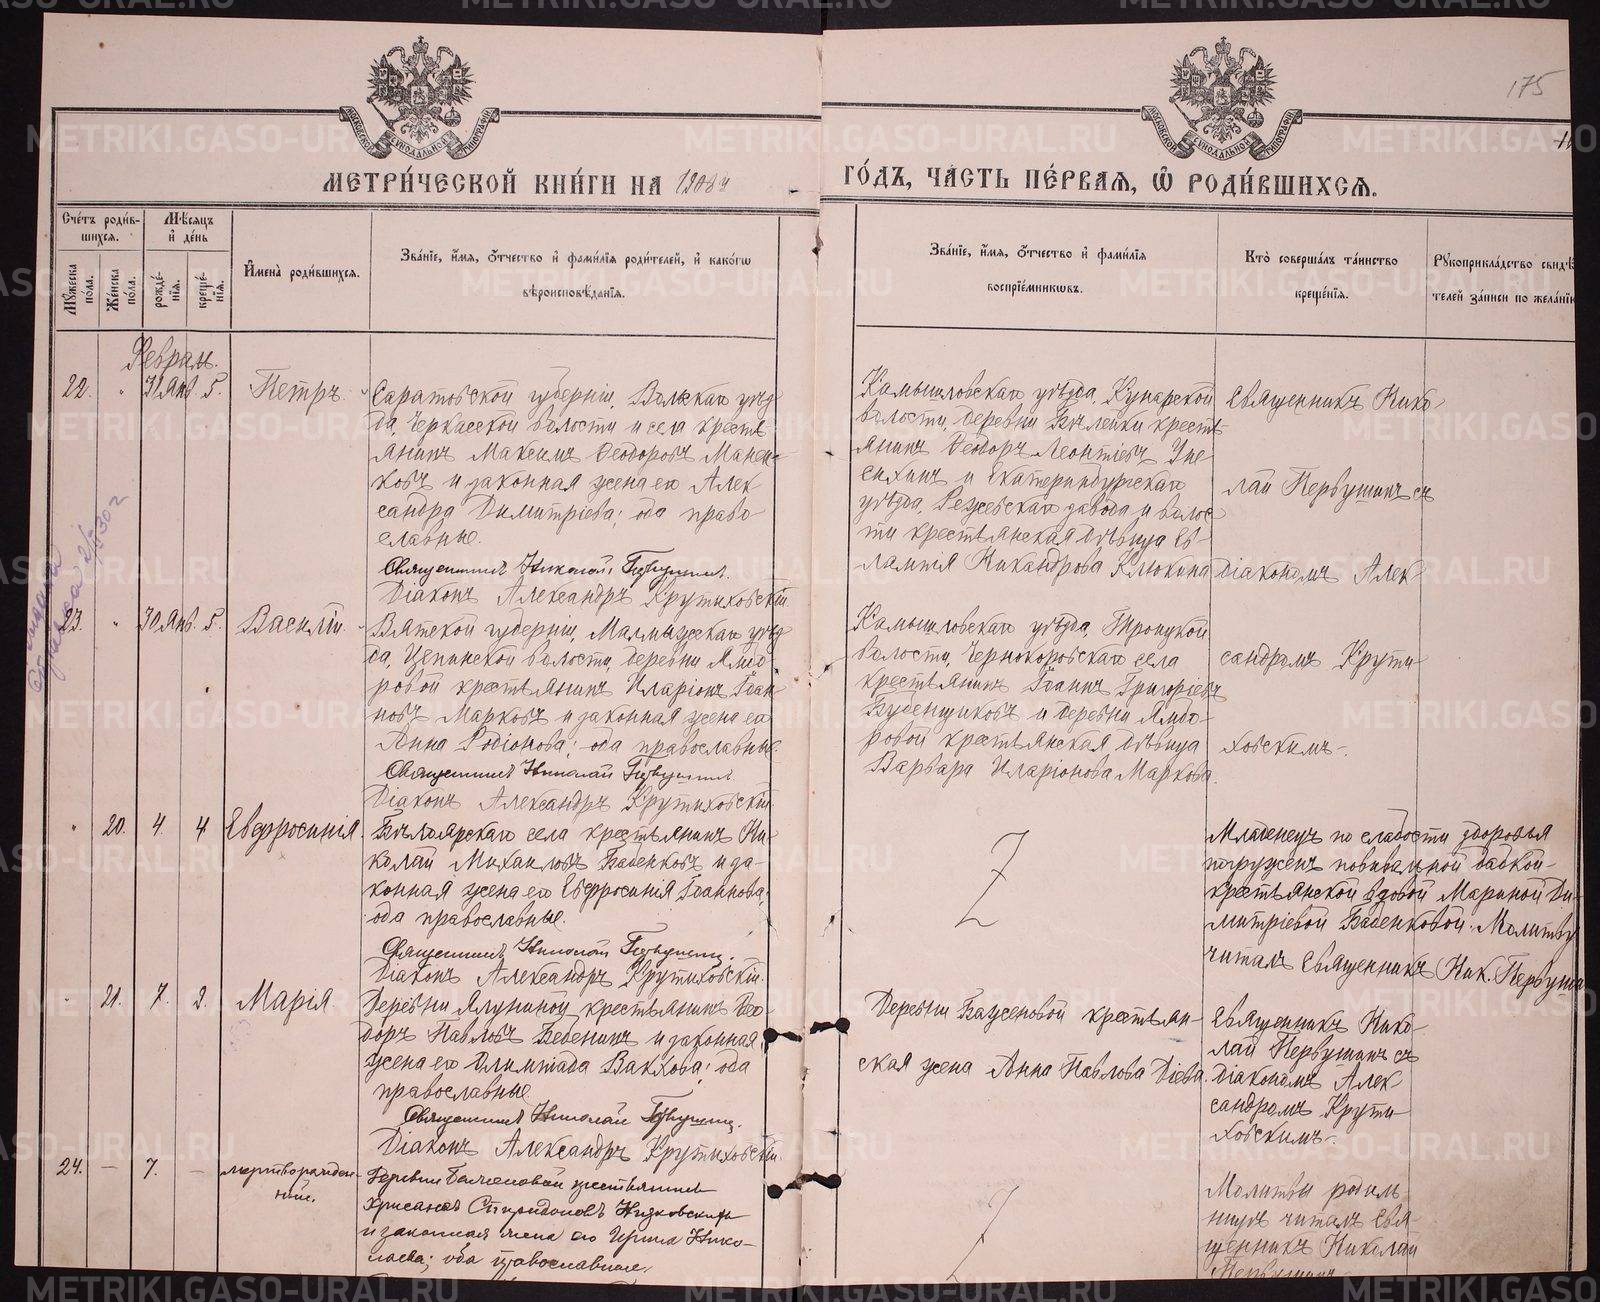 175
МЕТРИ́ЧЕСКОЙ КНИ́ГИ НА 1908 й
ГО́ДЪ, ЧА́СТЬ ПЕ́РВАЯ, Ѡ РОДИ́ВШИХСЯ.
Сче́тъ роди́вшихся.
Мѣ́сяцъ и́ де́нь
Му́жеска по́ла.
Же́нска по́ла.
рожде́нїя.
креще́нїя.
И҆мена̀ роди́вшихся.
Зва́нїе, и҆́мя, ѻ҆́тчество и҆ фами́лїя роди́телей, и҆ како́гѡ
вѣроисповѣ́данїя.
Зва́нїе, и҆́мя, ѻ҆́тчество и҆ фами́лїя
воспрїе́мникѡвъ.
Кто̀ соверша́лъ та́инство
креще́нїя.
Рꙋкоприкла́дство свидѣ
телей за́писи по жела́нїю
Февраль.
22. " 31 Янв. 5. Петръ.
Саратовской губерніи, Вольскаго уѣз
да, Черкасской волости и села кресть
янинъ Максимъ Ѳеодоровъ Манен-
ковъ и законная жена его Алек
сандра Димитріева; оба право
славные.
Священникъ Николай Первушинъ.
Діаконъ Александръ Крутиховскій.
Камышловскаго уѣзда, Кунарской
волости, деревни Бѣлейки кресть
янинъ Ѳеодоръ Леонтіевъ
и Екатеринбургскаго
уѣзда, Режевскаго завода и волос
ти крестьянская дѣвица Ев
лампія Никандрова Клюкина
Священникъ Нико-
лай Первушинъ съ
діакономъ Алек
23. " 30 Янв. 5. Василій.
Вятской губерніи, Малмыжскаго уѣз
да, Ципинской волости, деревни Ямбо-
ровой крестьянинъ Иларіонъ Іоан
новъ Марковъ и законная жена его
Анна Родіонова; оба православные.
Священникъ Николай Первушинъ
Діаконъ Александръ Крутиховскій
Камышловскаго уѣзда, Троицкой
волости, Чернокоровскаго села
крестьянинъ Іоаннъ Григоріевъ
Бубенщиковъ и деревни Ямбо-
ровой крестьянская дѣвица
Варвара Иларіонова Маркова.
сандромъ Крути
ховскимъ.
" 20. 4. 4 Евфросинія.
Бѣлоярскаго села крестьянинъ Ни
колай Михаиловъ Бабенковъ и за-
конная жена его Евфросинія Іоаннова;
оба православные.
Священникъ Николай Первушинъ.
Діаконъ Александръ Крутиховскій.
Младенецъ по слабости здоровья
погруженъ повивальной бабкой
крестьянской вдовой Мариной Ди-
митріевой Бабенковой. Молитву
читалъ Священникъ Ник. Первушин
" 21. 7. 9. Марія.
Деревни Ялуниной крестьянинъ Ѳео
доръ Павловъ Бебенинъ и законная
жена его Олимпіада Вакхова; оба
православные.
Священникъ Николай Первушинъ.
Діаконъ Александръ Крутиховскій.
Деревни Баженовой крестьян-
ская жена Анна Павлова Діева.
Священникъ Нико-
лай Первушинъ съ
діакономъ Алек
сандромъ Крути
ховскимъ.
24. — 7. — мертворожден-
ный.
Деревни Баженовой крестьянинъ
Хрисанѳъ Спиридоновъ Низковскихъ
и законная жена его Ирина Нико-
лаева; оба православные.
Молитвы родиль
ницѣ читалъ Свя-
щенникъ Николай
Первушинъ.
METRIKI.GASO-URAL.RU